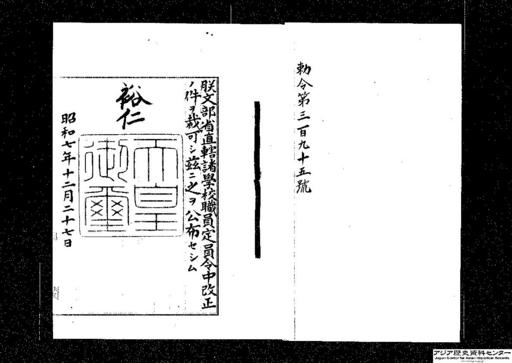 勅令第三百九十五號
朕文部省直轄諸學校職員定員令中改正
ノ件ヲ裁可シ茲ニ之ヲ公布セシム
裕仁
天皇
御璽
昭和七年十二月二十七日
アジア歴史資料センター
Japan Center for Asian Historical Records